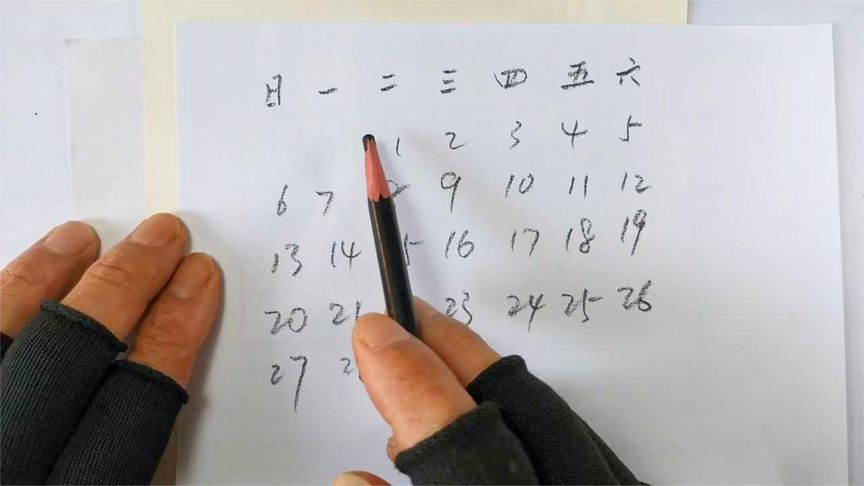 日 一 二 三 四 五 六
1 2 3 4 5
6 7 9 10 11 12
13 14 16 17 18 19
20 21 23 24 25 26
27